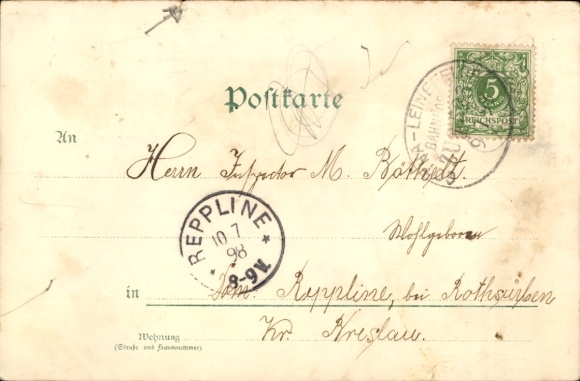 Postkarte
5
PFENNIG
REICHSPOST
An
Herrn Inspector M. Böthelt.
Wohlgeboren
REPPLINE
10 7
98
8-9V.
in Dom. Reppline, bei Rothsürben
Kr. Breslau.
Wohnung
(Straße und Hausnummer)